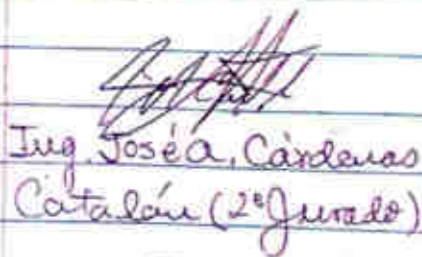 Ing. José A. Cárdenas
Catalán (2º Jurado)